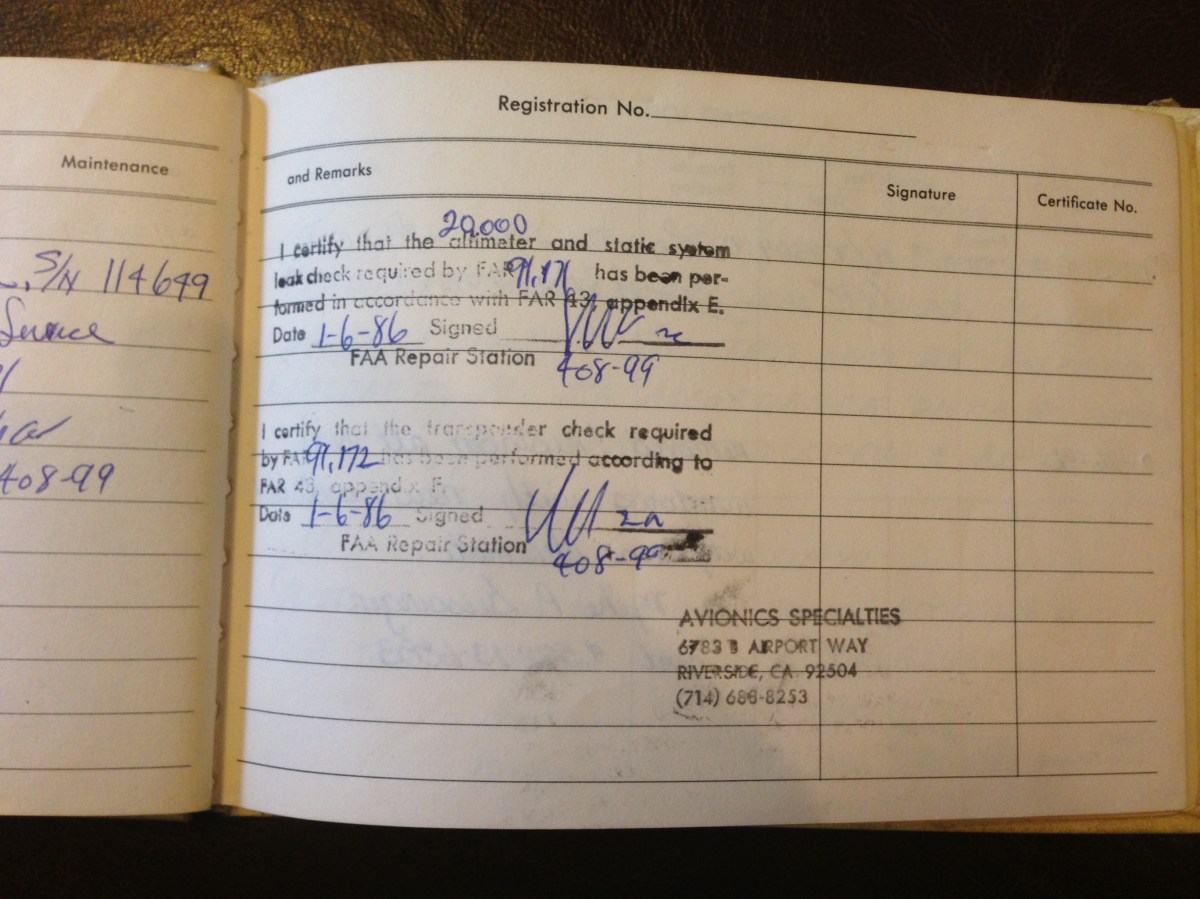 Maintenance
S/N 114649
Service
408-99
Registration No.
and Remarks
Signature
Certificate No.
20,000
I certify that the altimeter and static system
leak check required by FAR 91.171 has been per-
formed in accordance with FAR 43, appendix E.
Date 1-6-86 Signed
FAA Repair Station 408-99
I certify that the transponder check required
by FAR 91.172 has been performed according to
FAR 43, appendix F.
Date 1-6-86 Signed
FAA Repair Station 408-99
AVIONICS SPECIALTIES
6783 B AIRPORT WAY
RIVERSIDE, CA. 92504
(714) 688-8253